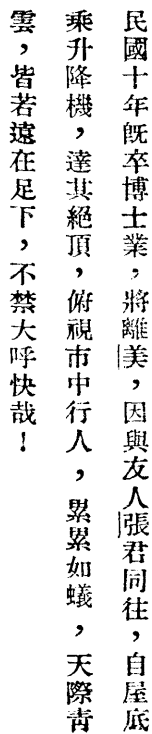 民國十年旣卒博士業，將離美，因與友人張君同往，自屋底
乘升降機，達其絕頂，俯視市中行人，累累如蟻，天際青
雲，皆若遠在足下，不禁大呼快哉！